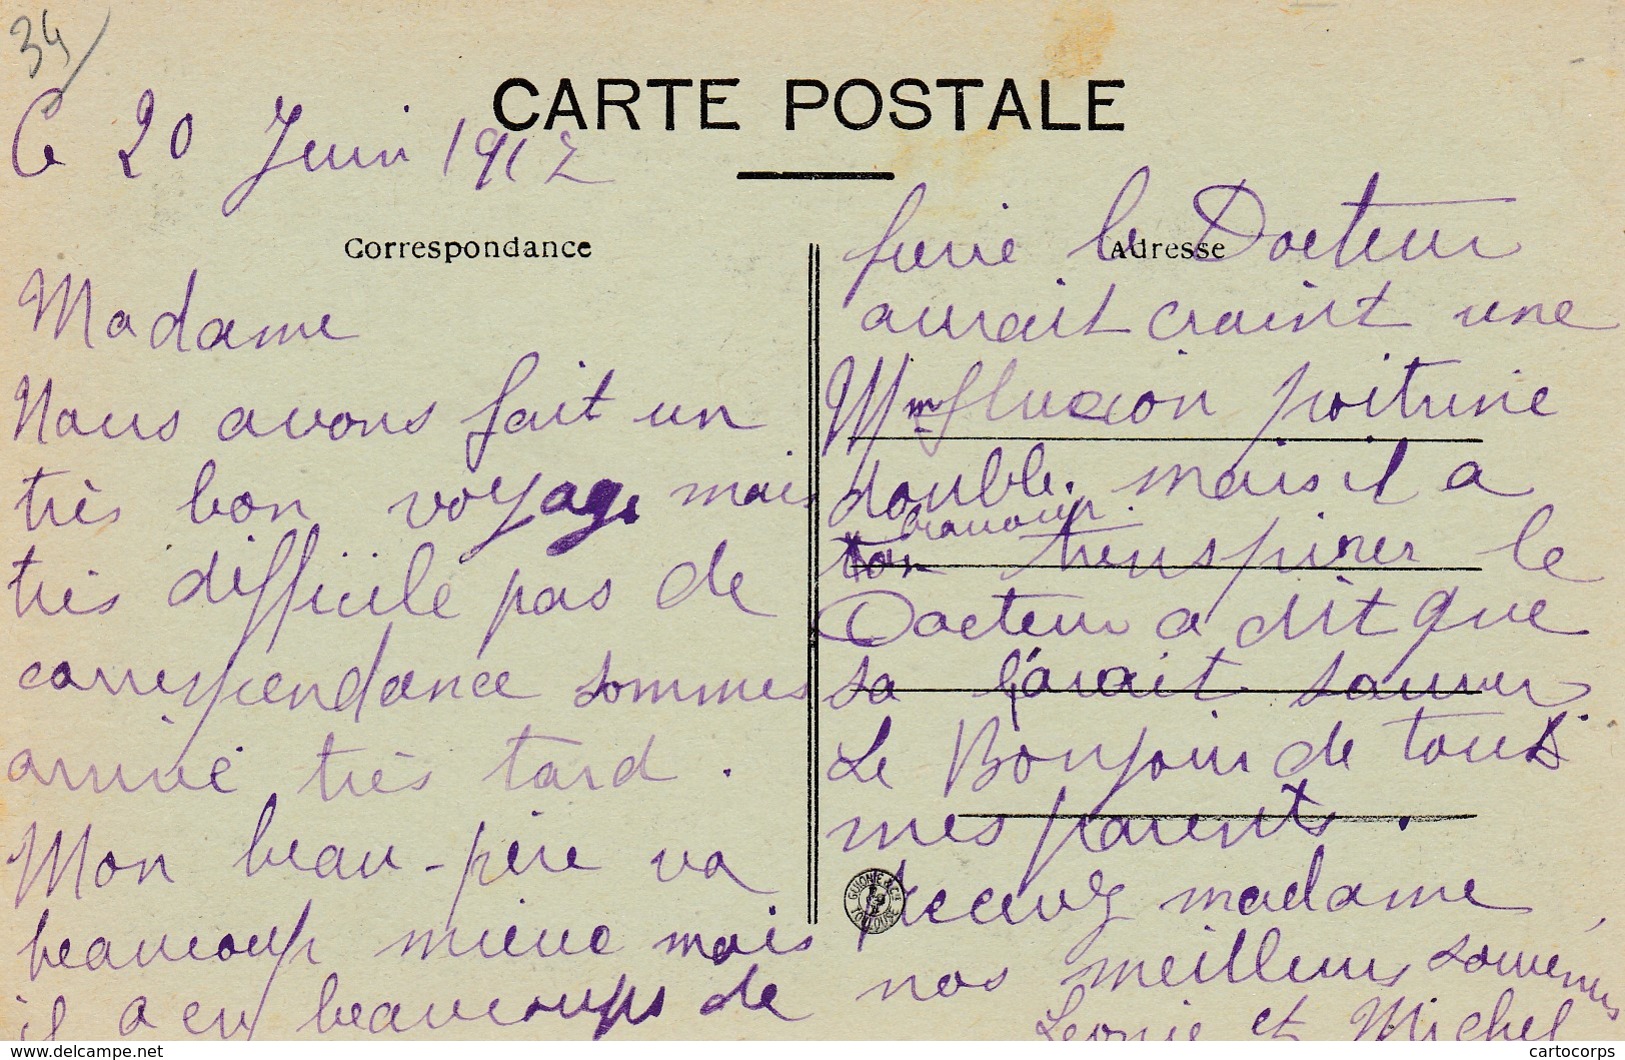 34
CARTE POSTALE
Le 20 Juin 1912
Correspondance
Madame
Nous avons fait un
très bon voyage mais
très difficile pas de
correspendance sommes
arrivé très tard.
Mon beau-père va
beaucoup mieue mais
il a eu beaucoups de
Adresse
fievie le Docteur
aurait craint une
fluxion poitrine
double. mais il a
beaucoup
trenspirer le
Docteur a dit que
sa l'avait sauver
Le Bonjour de tous
mes parents.
Recevez madame
nos meilleurs souvenirs
Leonie et Michel
GUIONIE & Cie TOULOUSE
cartocorps